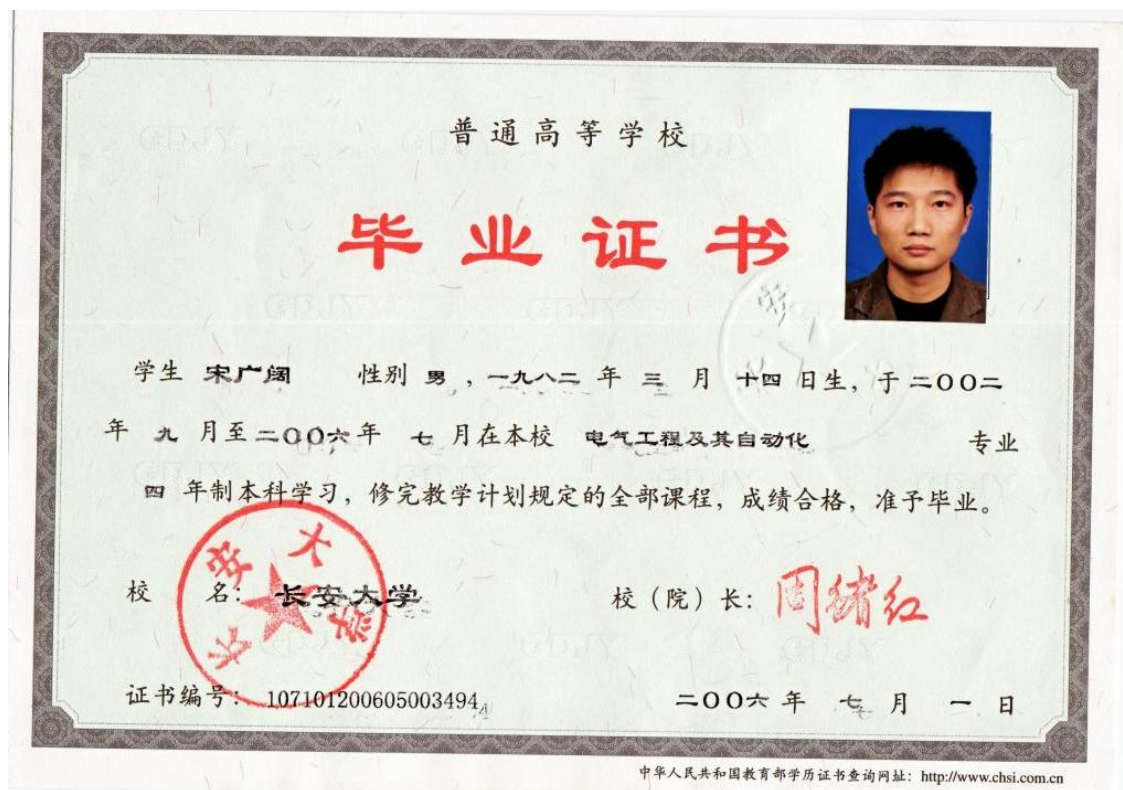 普通高等学校
毕业证书
学生 宋广阔 性别 男 ，一九八二 年 三 月 十四 日生，于 二〇〇二
年 九 月至 二〇〇六 年 七 月在本校 电气工程及其自动化 专业
四 年制本科学习，修完教学计划规定的全部课程，成绩合格，准予毕业。
长安大学
校 名： 长安大学 校（院）长： 周绪红
证书编号： 107101200605003494 二〇〇六 年 七 月 一 日
中华人民共和国教育部学历证书查询网址：http://www.chsi.com.cn